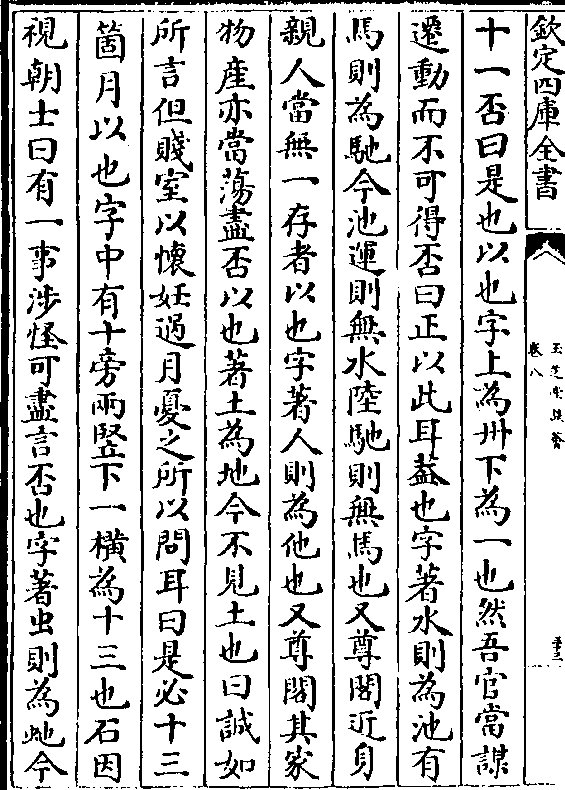 欽定四庫全書
玉芝堂談薈
卷八
十一否曰是也以也字上為卅下為一也然吾官當謀
遷動而不可得否曰正以此耳葢也字著水則為池有
馬則為馳今池運則無水陸馳則無馬也又尊閣近身
親人當無一存者以也字著人則為他也又尊閣其家
物産亦當蕩盡否以也著土為地今不見土也曰誠如
所言但賤室以懐妊過月憂之所以問耳曰是必十三
箇月以也字中有十旁兩竪下一橫為十三也石因
視朝士曰有一事渉怪可盡言否也字著虫則為虵今